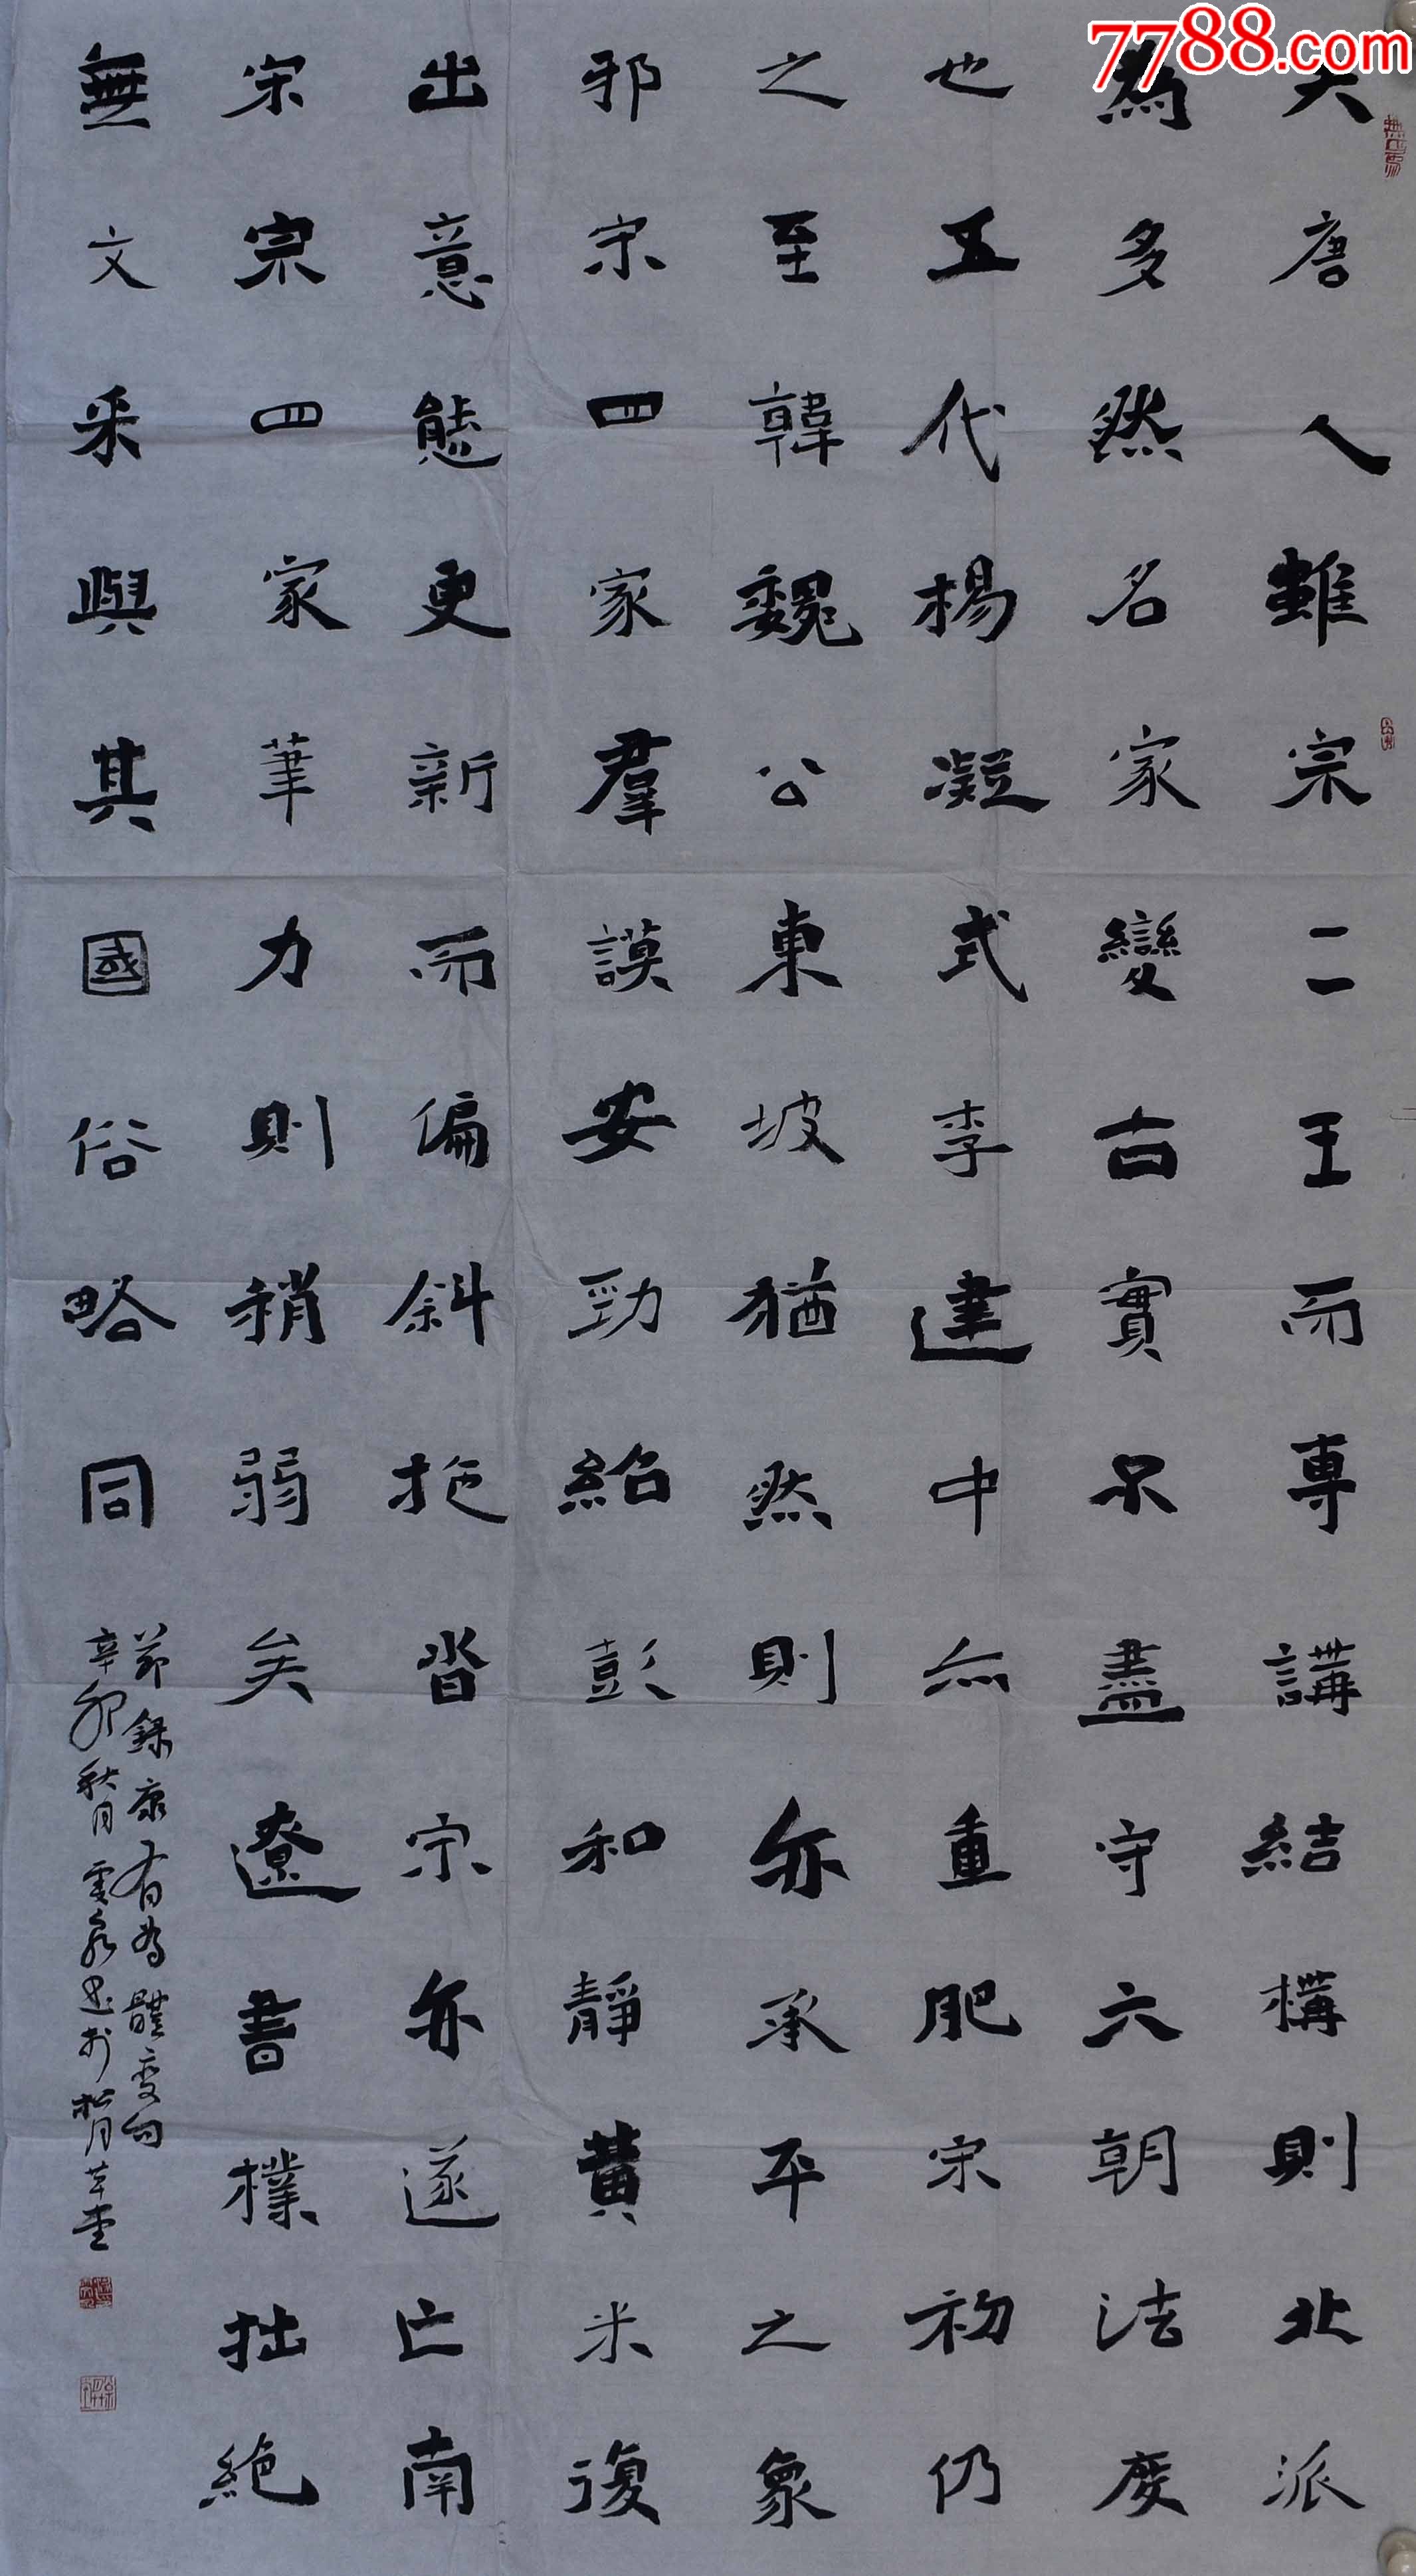 7788.com
夫唐人雖宗二王而專講結構則北派
為多然名家變古實不盡守六朝法度
也五代楊凝式李建中亦重肥宋初仍
之至韓魏公東坡猶然則亦承平之象
邪宋四家羣謨安勁紹彭和靜黃米復
出意態更新而偏斜拖沓宗亦遂亡南
宋宗四家筆力則稍弱矣遼書樸拙絕
無文采與其國俗略同
節錄康有為體變句
辛卯秋月雲泉書於松月草堂